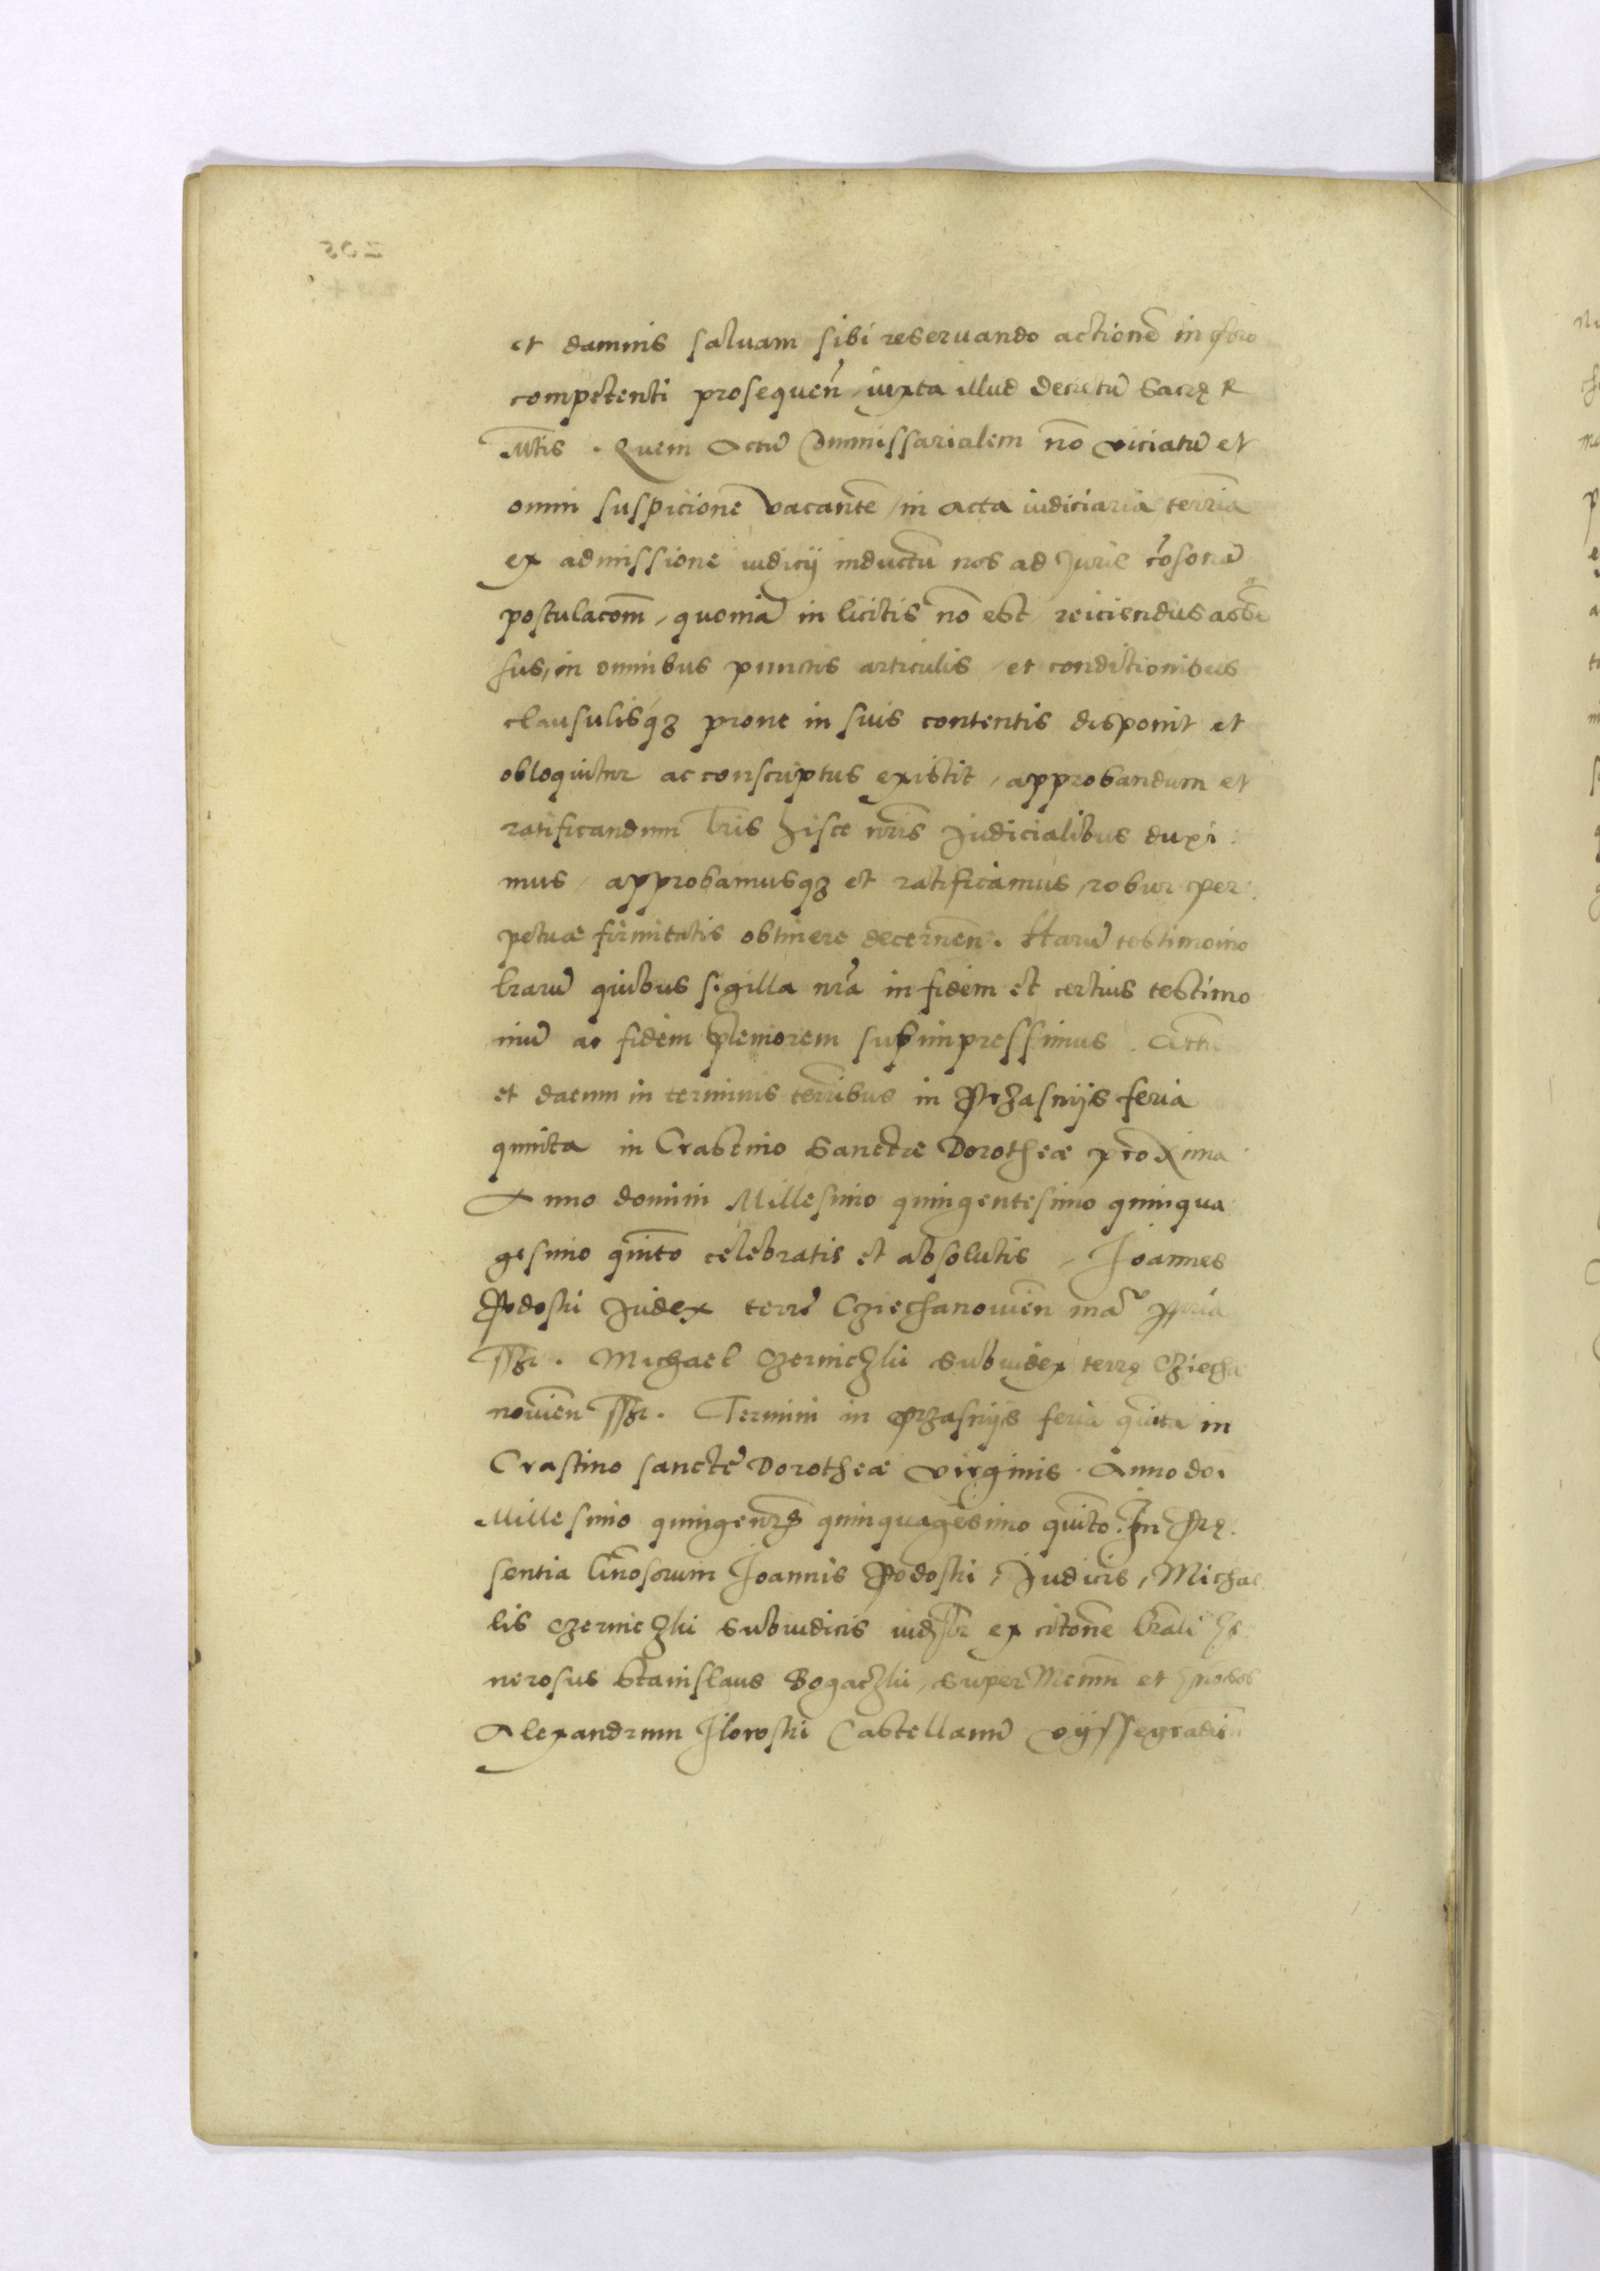 et damnis salvam sibi reservando actionē in foro
competenti prosequeń, iuxta illud decretū Sacrę R
Mtis. Quem Actū Commissarialem nō viciatū et
omni suspicione vacantē, in acta iudiciaria terriā
ex admissione iudicij inductū nos ad Juris
postulacoēm, quoniā in licitis nō est reiciendus assē
sus, in omnibus punctis articulis et conditionibus
clausulisqꝫ prout in suis contentis disponit et
obloquitur ac conscriptus existit, approbandum et
ratificandum lris hisce nrīs Judicialibus duxi
mus, approbamusqꝫ et ratificamus, robur per
petuæ firmitatis obtinere decerneń. Harū testimonio
lrarū quibus sigilla nrā in fidem et certius testimo
niū ac fidem pleniorem subimpressimus. Actū
et datum in terminis terribus in Przasnijs feria
quinta in Crastino Sanctæ Dorotheæ proxima
Anno domini Millesimo quingentesimo quinqua
gesimo quīto celebratis et absolutis, Joannes
Podoski Judex terrę Cziechanovień manū ppria
sst. Michael Czerniczki Subiudex terrę Cziecha
novień sst. Termini in Przasnijs feria quīta in
Crastino sanctę Dorotheæ virginis. Anno do.
Millesimo quingentes quinquagesimo quīto. In Prę
sentia Gnosorum Joannis Podoski, Judicis, Michae
lis Czerniczki Subiudicis ex citone lrali Ge
nerosus Stanislaus Bogaczki, super Mcum et Gnosos
Alexandrum Jlowski Castellanū Vijssegradień